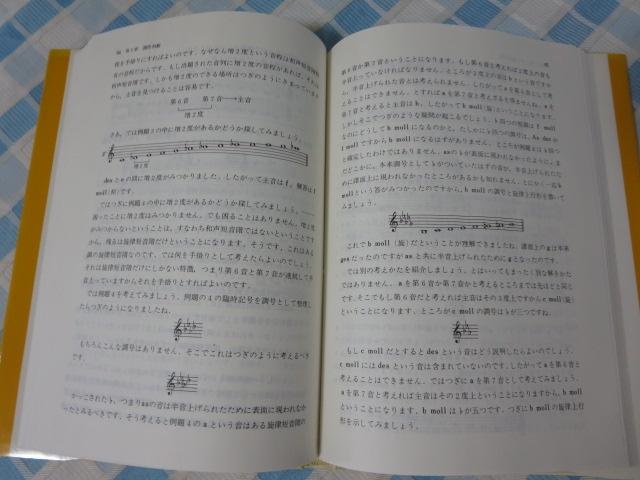 を手掛りにすればよいのです。なぜなら増2度という音程は和声短音階特
有の音程だからです。もし活躍された音列に増2度の音程があれば、それは
和声短音階です。しかも増2度のできる場所はつぎのようにきまっています
から、主音を見つけることは容易です。
第6音 第7音→主音
増2度
さあ、では例題3の中に増2度があるかどうか探してみましょう。
増2度
desとeの間に増2度がみつかりました。したがって主音はf、解答はf
moll(和)です。
ではつぎに例題4の中に増2度があるかどうか探してみましょう。
困ったことに増2度はみつかりません。でも困ることはありません。増2度
がみつからないということは、すなわち和声短音階ではないということです
から、残るは旋律短音階だけということになります。そうです、これはある
調の旋律短音階なのです。では何を手掛りとして考えたらよいのでしょう。
それは旋律短音階だけにしかない特徴、つまり第6音と第7音が連続して半
音上っていますからそれを手掛りとすればよいのです。
では例題4を考えてみましょう。例題の4の臨時記号を調号として整理し
たらつぎのようになりましたね。
もちろんこんな調号はありません。そこでこれはつぎのように考えるべき
です。
かっこされた♭、つまりasの音は半音上げられたために表面に現われなか
ったとみるべきです。そう考えると例題4のaという音はある旋律短音階の
第6音か第7音ということになります。もし第6音と考えれば2度上の音も
半音上っていなければなりません。ところが2度上の音はbという音ですか
ら、半音上げられた音とは考えられません。したがってaを第6音と考え
ることはできません。とすればaを第7音と考える以外ありませんね。aを
第7音と考えると主音はb、したがってb moll(旋)ということになります。
しかしそこでつぎのような疑問が起こるでしょう。♭四つの短調はf moll
なのにどうしてb mollになるのかと。たしかに♭四つの調号は、As durか
f mollであることはまちがいありません。ところが例題4は♭四つ
と確定したわけではありません。asの♭が表面に現われなかったように、ま
だどこかに、本来調号として♭がついていたはずの音が、半音上げられたた
めに譜面上に現われなかったところがあるかも知れません。とにかく一応b
mollという答がみつかったのですから、b mollの調号と旋律上行形を書いて
みましょう。
これでb moll(旋)だということが理解できましたね。譜面上のgは本来
gesだったのですがasと共に半音上げられたためにgとなったのです。
では別の考えかたを紹介しましょう。とはいってもまったく別な解きかた
ではありません。aを第6音か第7音かと考えるところまでは先ほどと同じ
です。そこでもし第6音だと考えれば主音はその3度上ですからc moll(旋)と
いうことになります。ところがc mollの調号は♭が三つですね。
もしc mollだとするとdesという音はどう説明したらよいのでしょう。
c mollにはdesという音は含まれていないのです。したがってaを第6音と
考えることはできません。ではつぎにaを第7音として考えてみましょう。
aを第7音と考えれば主音はその2度上ということになりますから、b moll
ということになります。b mollは♭が五つです。つぎにb mollの旋律上行
形を示してみましょう。